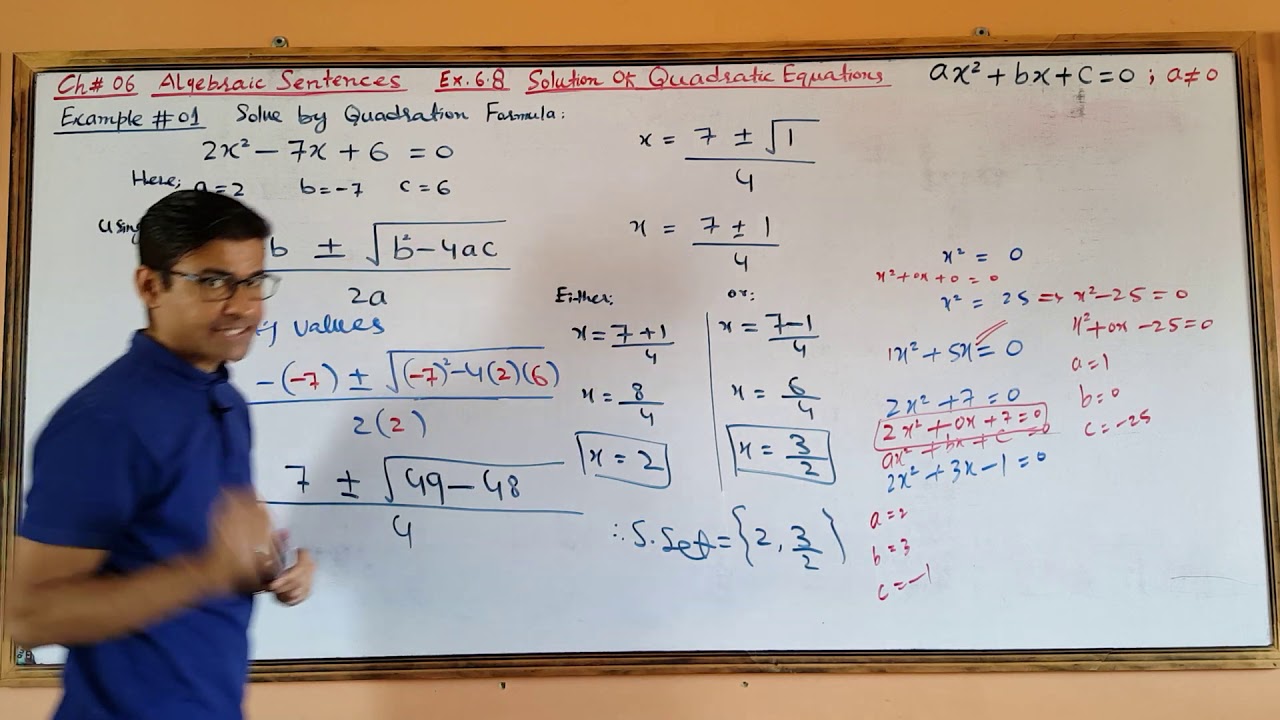 Ch# 06 Algebraic Sentences Ex. 6.8 Solution Of Quadratic Equations ax² + bx + c = 0 ; a ≠ 0
Example # 01 Solve by Quadration Formula:
2x² - 7x + 6 = 0
Here; a = 2 b = -7 c = 6
Using
b ± √(b² - 4ac)
2a
values
-(-7) ± √((-7)² - 4(2)(6))
2(2)
7 ± √(49 - 48)
4
x = 7 ± √1
4
x = 7 ± 1
4
Either;
x = 7 + 1
4
x = 8
4
x = 2
or;
x = 7 - 1
4
x = 6
4
x = 3
2
∴ S.Set = {2, 3/2}
x² = 0
x² + 0x + 0 = 0
x² = 25 ⇒ x² - 25 = 0
x² + 0x - 25 = 0
a = 1
b = 0
c = -25
1x² + 5x = 0
2x² + 7 = 0
2x² + 0x + 7 = 0
ax² + bx + c = 0
2x² + 3x - 1 = 0
a = 2
b = 3
c = -1